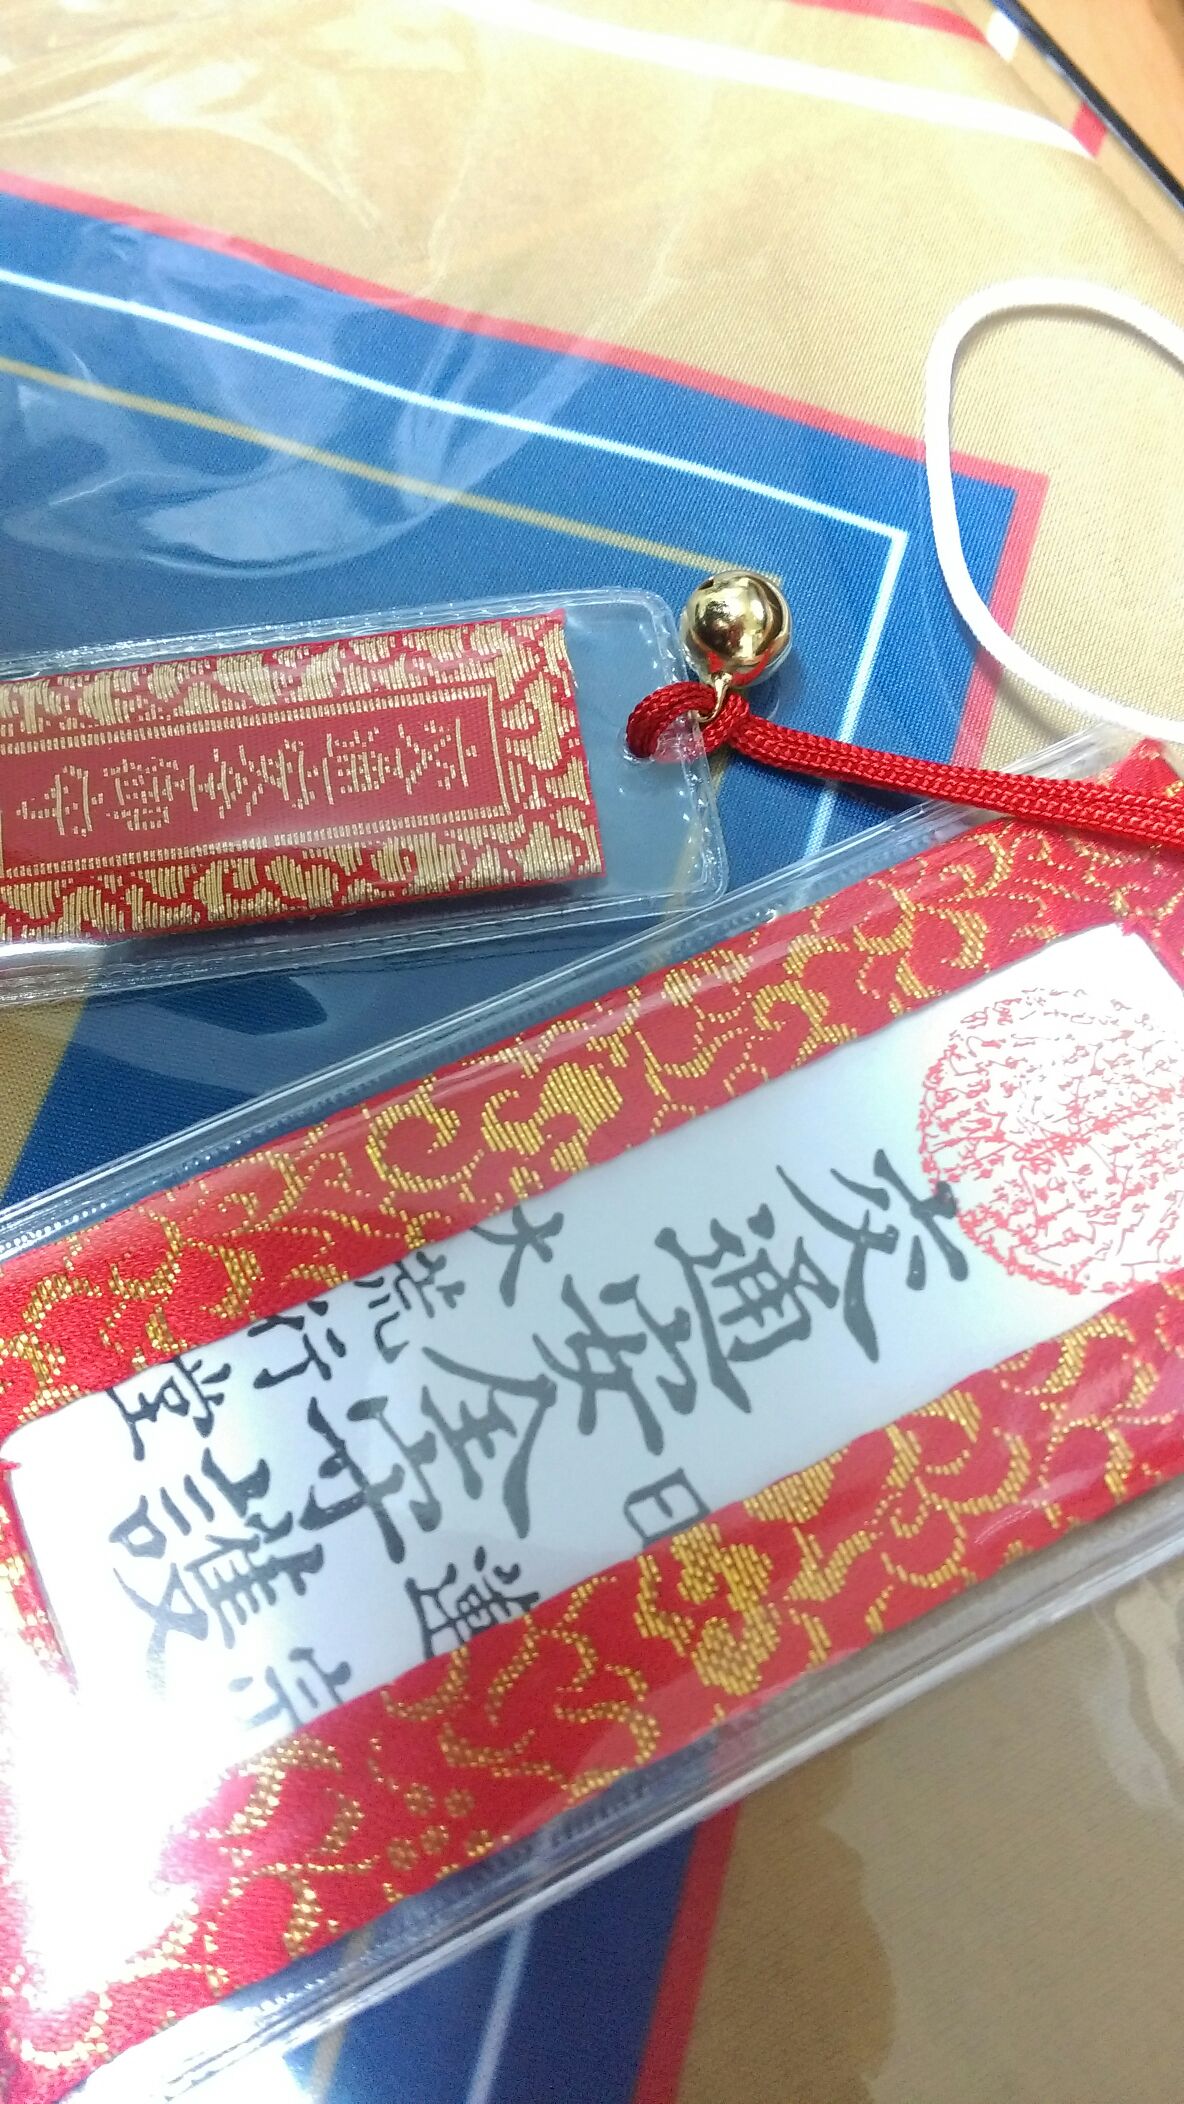 交通安全御守
交通安全守護
大荒行堂
日蓮宗